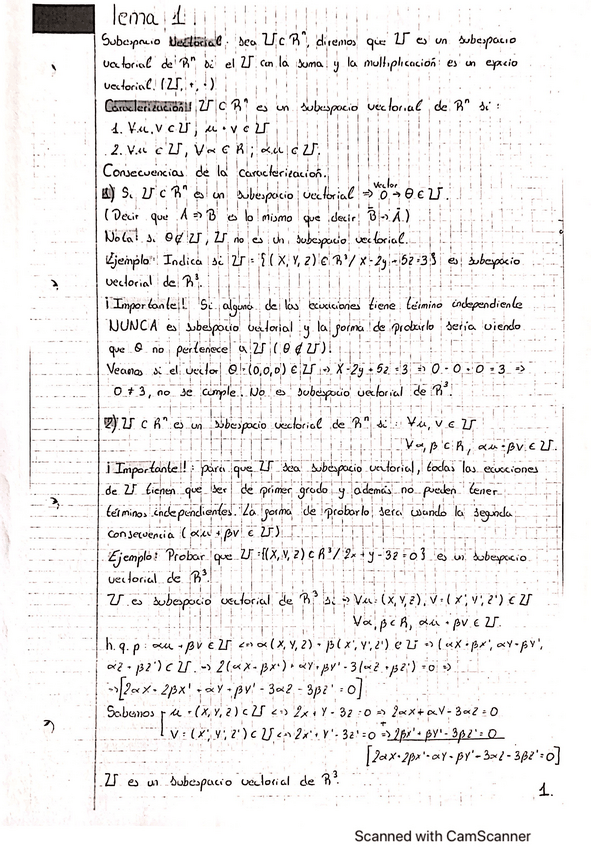 Tema 1.
Subespacio Vectorial. Sea U ⊂ Rⁿ, diremos que U es un subespacio
vectorial de Rⁿ si el U con la suma y la multiplicación es un espacio
vectorial. (U, +, ·)
Caracterización U ⊂ Rⁿ es un subespacio vectorial de Rⁿ si:
1. ∀u, v ∈ U; u + v ∈ U
2. ∀u ∈ U, ∀α ∈ R; αu ∈ U.
Consecuencias de la caracterización.
1) Si U ⊂ Rⁿ es un subespacio vectorial ⇒ vector 0 → θ ∈ U.
(Decir que A ⇒ B es lo mismo que decir B̄ → Ā)
Nota: si θ ∉ U, U no es un subespacio vectorial.
Ejemplo: Indica si U = {(x, y, z) ∈ R³ / x - 2y + 5z = 3} es subespacio
vectorial de R³.
¡Importante! Si alguna de las ecuaciones tiene término independiente
NUNCA es subespacio vectorial y la forma de probarlo sería viendo
que θ no pertenece a U (θ ∉ U).
Veamos si el vector θ = (0,0,0) ∈ U ⇒ x - 2y + 5z = 3 ⇒ 0 - 0 + 0 = 3 ⇒
0 ≠ 3, no se cumple. No es subespacio vectorial de R³.
2) U ⊂ Rⁿ es un subespacio vectorial de Rⁿ si: ∀u, v ∈ U
∀α, β ∈ R, αu + βv ∈ U.
¡Importante!: para que U sea subespacio vectorial, todas las ecuaciones
de U tienen que ser de primer grado y además no pueden tener
términos independientes. La forma de probarlo será usando la segunda
consecuencia (αu + βv ∈ U)
Ejemplo: Probar que U = {(x, y, z) ∈ R³ / 2x + y - 3z = 0} es un subespacio
vectorial de R³
U es subespacio vectorial de R³ si ⇒ ∀u = (x, y, z), v = (x', y', z') ∈ U
∀α, β ∈ R, αu + βv ∈ U.
h.q.p: αu + βv ∈ U ⇔ α(x, y, z) + β(x', y', z') ∈ U ⇒ (αx + βx', αy + βy',
αz + βz') ∈ U. ⇒ 2(αx + βx') + αy + βy' - 3(αz + βz') = 0 ⇒
⇒ [2αx + 2βx' + αy + βy' - 3αz - 3βz' = 0]
Sabemos u = (x, y, z) ∈ U ⇔ 2x + y - 3z = 0 ⇒ 2αx + αy - 3αz = 0
v = (x', y', z') ∈ U ⇔ 2x' + y' - 3z' = 0 ⇒ 2βx' + βy' - 3βz' = 0
[2αx + 2βx' + αy + βy' - 3αz - 3βz' = 0]
U es un subespacio vectorial de R³.
1.
Scanned with CamScanner